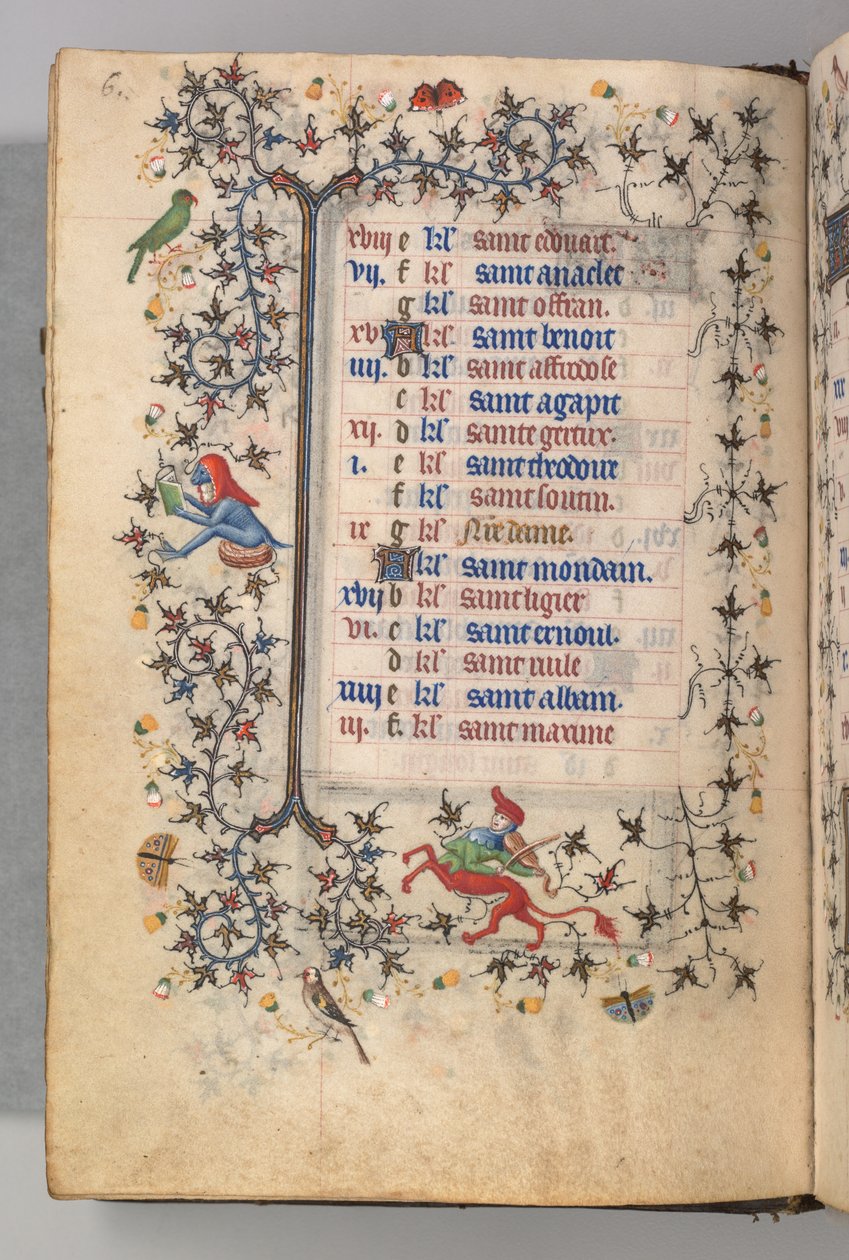 6.
xviij e kl saint edouart.
vij. f kl saint anaclet
g kl saint offran.
xv A kl. saint benoit
iiij. b kl saint affrodose
c kl saint agapit
xij. d kl sainte gertrux.
i. e kl saint theodoire
f kl saint soutin.
ix g kl Nre dame.
A kl saint mondain.
xvij b kl saint ligier
vi. c kl saint ernoul.
d kl saint uule
xiiij e kl saint albain.
iij. f. kl saint maxime